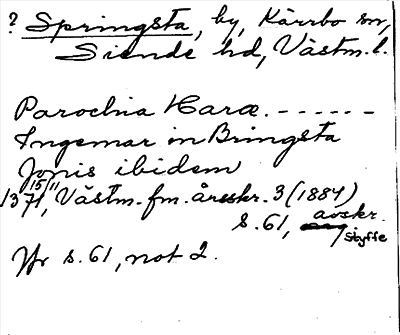 ? Springsta, by, Kärrbo sn,
Siende hd, Västm. l.
Parochia Haræ. - - - - - -
Ingemar in Bringsta
Jonis ibidem
1371 15/11, Västm. fm. årsskr. 3 (1884)
s. 61, avskr.
Styffe
Jfr s. 61, not 2.